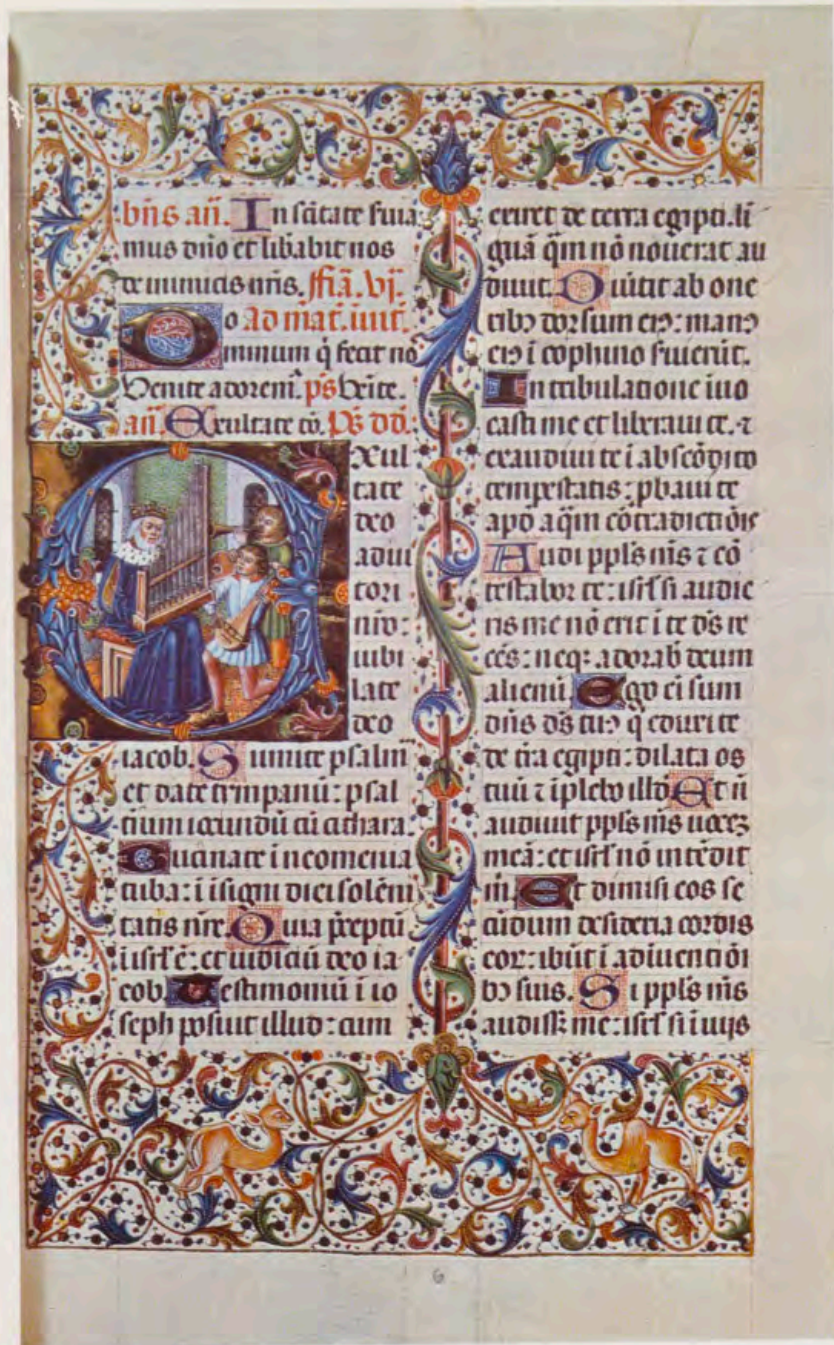 bñs añ. In sc̃itate suia
mus dño et lib̃abit nos
de inimicis nr̃is. ffia. vj.
Do Ad mat̃. iuit̃.
minum q̃ fecit nõ
Venite adorem̃. p̃s Veite.
añ. Exultate cõ. P̃s d̃d.
EXul
tate
deo
adiu
tori
nr̃o:
iubi
late
deo
iacob. Sumite psalm̃
et date timpanũ: psal
tiũm iocundũ cũ cithara.
Bucinate in neomenia
tuba: ĩ ĩsigni diei solẽni
tatis nr̃e. Quia p̃reptũ
ĩ isr̃l ẽ: et iudiciũ deo ia
cob. Testimoniũ ĩ io
seph posuit illud: cum
exiret de terra egipti. li
guã q̃m nõ noverat au
divit. Divitit ab one
ribꝰ dorsum eiꝰ: manꝰ
eiꝰ ĩ cophino fuierũt.
In tribulatione iuo
casti me et liberaui te. ꝛ
exaudiui te ĩ abscõdito
tempestatis: p̃baui te
apd̃ aq̃m cõtradictiõis
Audi ppl̃s m̃s ꝛ cõ
testabor te: isr̃l si audie
ris me nõ erit ĩ te d̃s re
cẽs: neqꝫ adorab̃ deum
alienũ. Ego ei sum
dñs d̃s tuꝰ q̃ eduxi te
de tr̃a egipti: dilata os
tuũ ꝛ ĩplebo illd̃ Et ñ
audiuit ppl̃s m̃s uocẽ
meã: et isr̃l nõ intẽdit
m̃. Et dimisi eos se
cũdum desideria cordis
eoꝝ: ibũt ĩ adiuentiõi
bꝰ suis. Si ppl̃s m̃s
audisset me: isr̃l si ĩ uijs
6